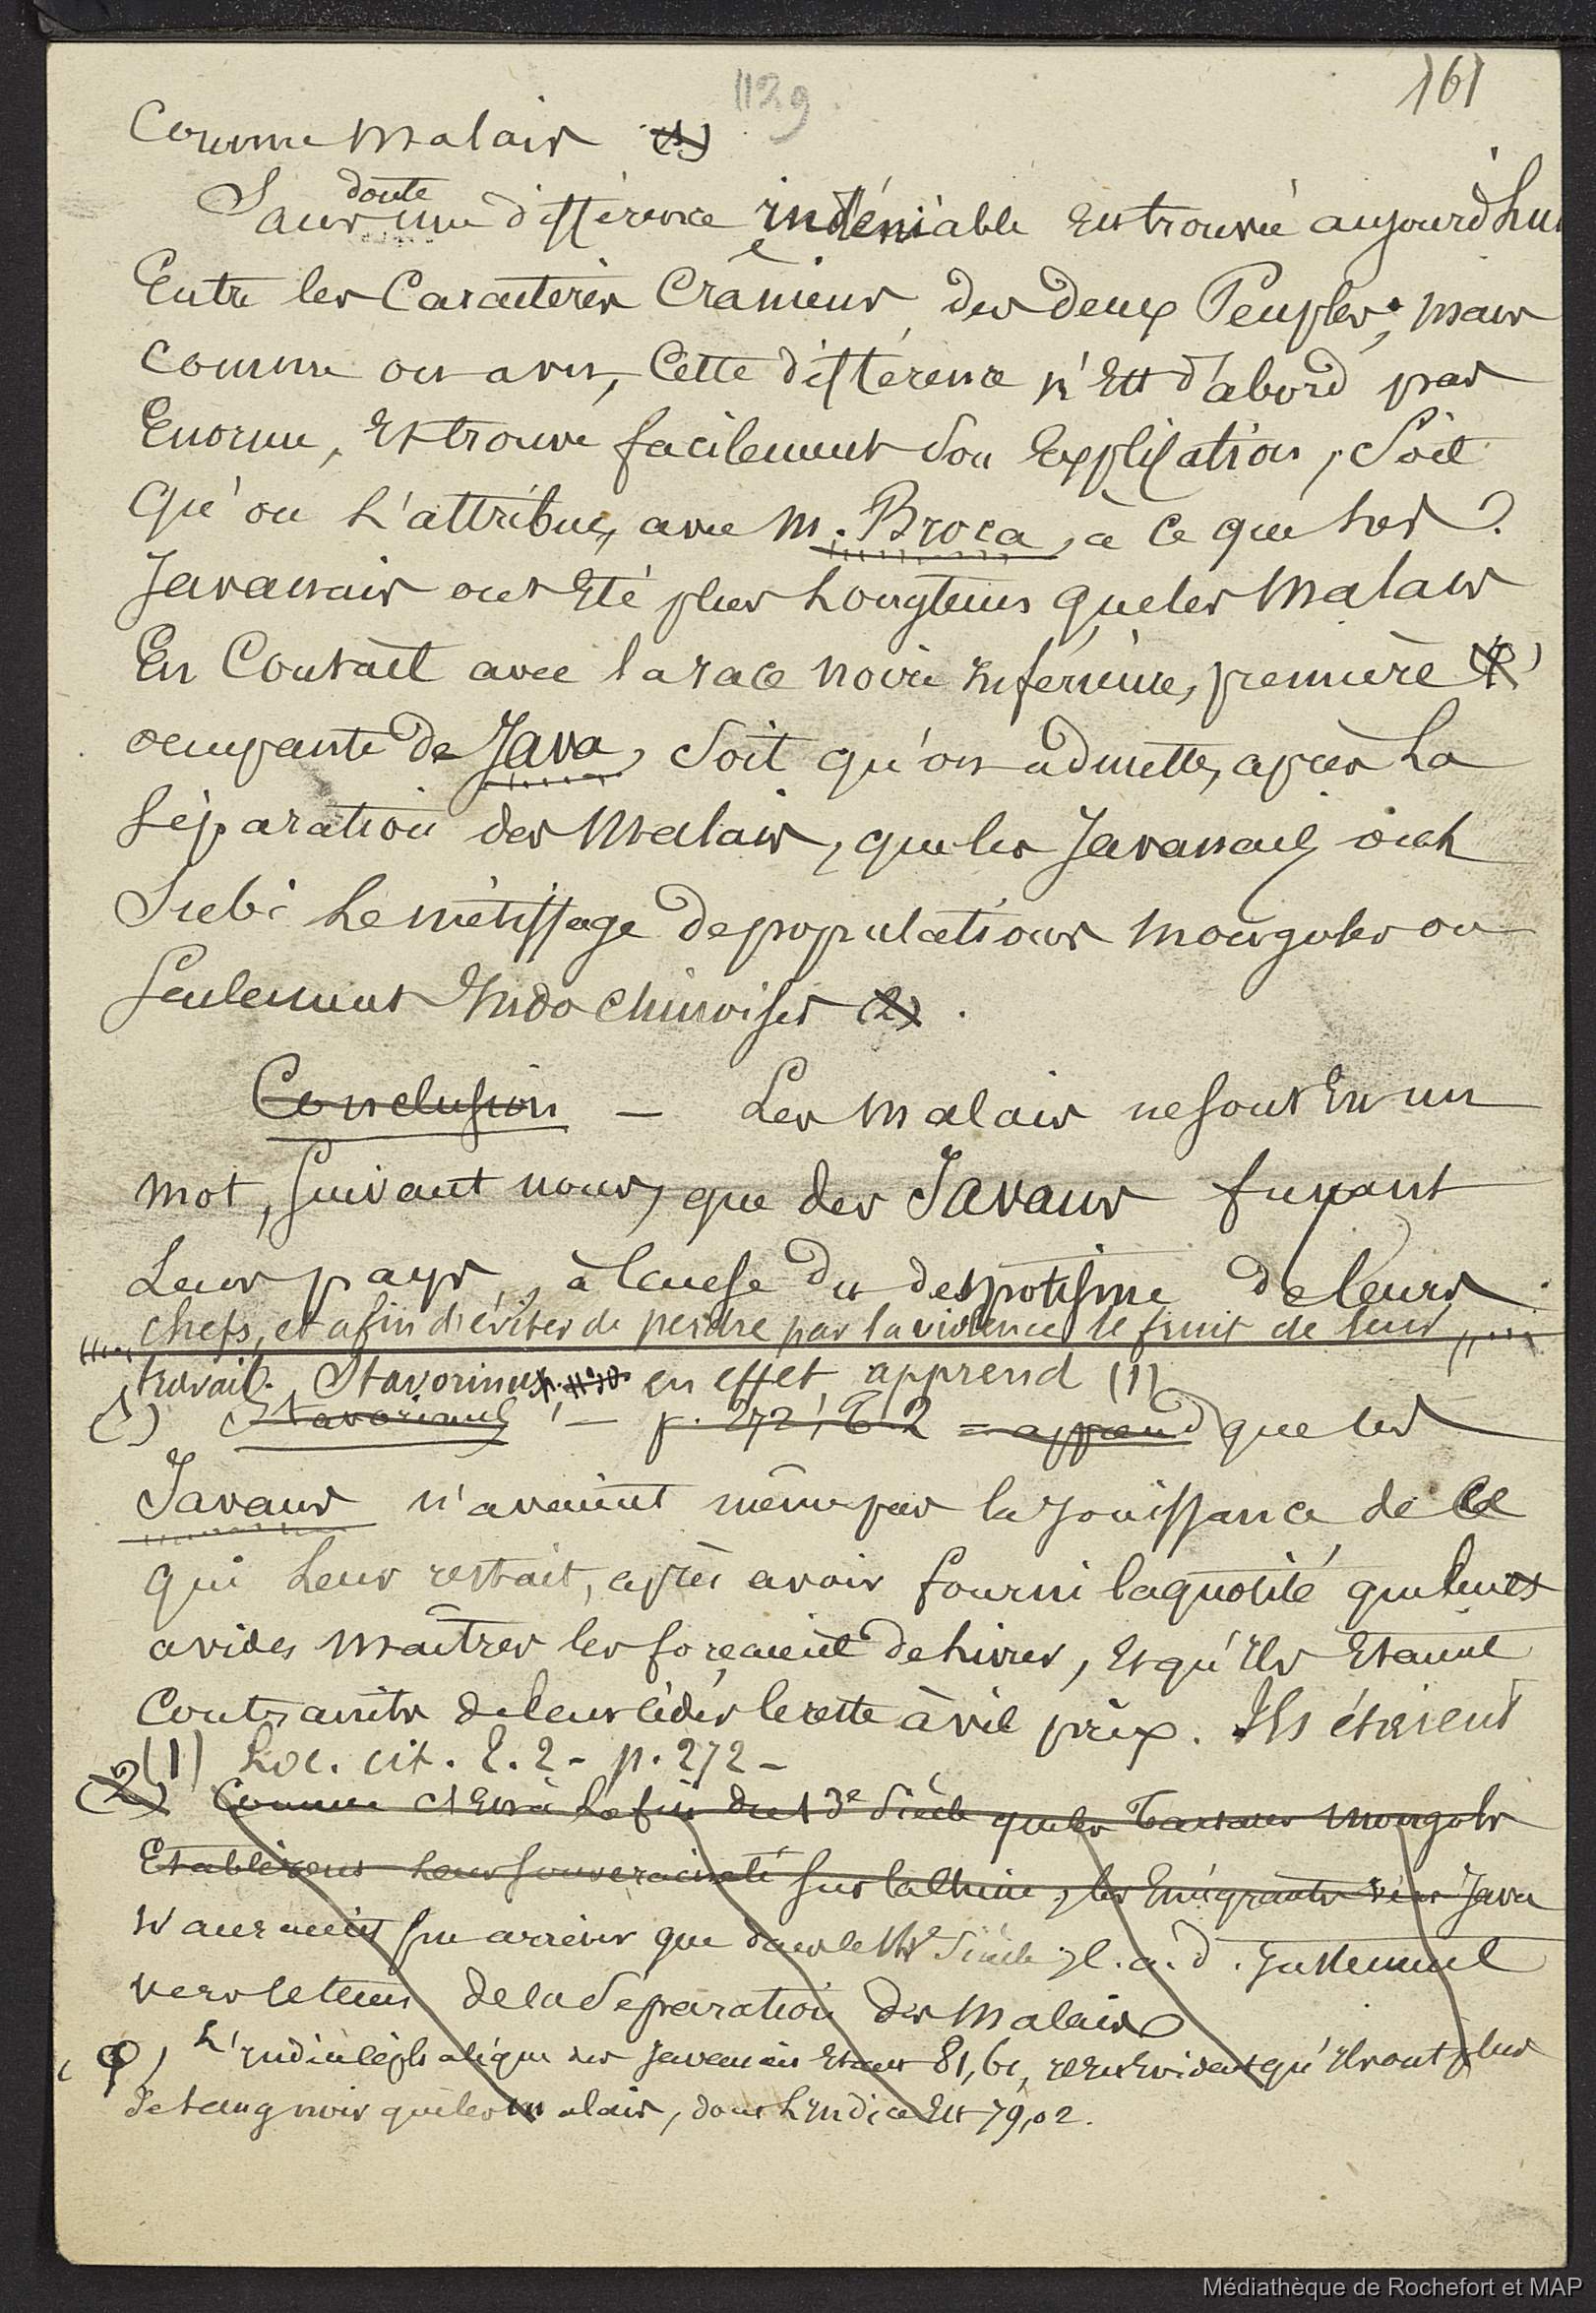 161
1129
Comme Malais (1)
Sans doute une différence indéniable est trouvée aujourd'hui
Entre les Caractères Crâniens des deux Peuples; mais
comme on a vu, Cette différence n'Est d'abord pas
Enorme, Et trouve facilement Son Explication, Soit
Qu'on L'attribue, avec M. Broca, à ce que Les ?
Javanais ont Eté plus Longtems que les Malais
En Contact avec la race noire Inférieure, première (φ)
occupante de Java, Soit qu'on admette, après La
Séparation des Malais, que les Javanais ont
Subi Le métissage de populations Mongoles ou
Seulement Indo Chinoises (2).
Conclusion — Les Malais ne sont En un
mot, Suivant nous, que des Javans fuyant
Leur pays, à Cause du despotisme de leurs
chefs, et afin d'éviter de perdre par la violence le fruit de leur
travail. Stavorinus en effet, apprend (1)
(1) Stavorinus, — p. 272, T. 2 = apprend que les
Javans n'avaient même pas la Jouissance de ce
qui Leur restait, après avoir fourni la quotité que leurs
avides Maîtres les forçaient de livrer, Et qu'Ils Etaient
Contraints de leur céder le reste à vil prix. Ils étaient
(1) Loc. cit. t. 2 - p. 272 -
(2) Comme c'Est à La fin du 13e Siècle que les Tartares Mongols
Etablirent Leur Souveraineté Sur la Chine, les Emigrants vers Java
n'auraient pu arriver que dans le Siècle, C. a. d. Justement
vers le tems de la Séparation des Malais
(φ) L'Indice céphalique des Javanais Etant 81,61, il Est Evident qu'Ils ont plus
de sang noir que les Malais, dont L'Indice Est 79,02.
Médiathèque de Rochefort et MAP